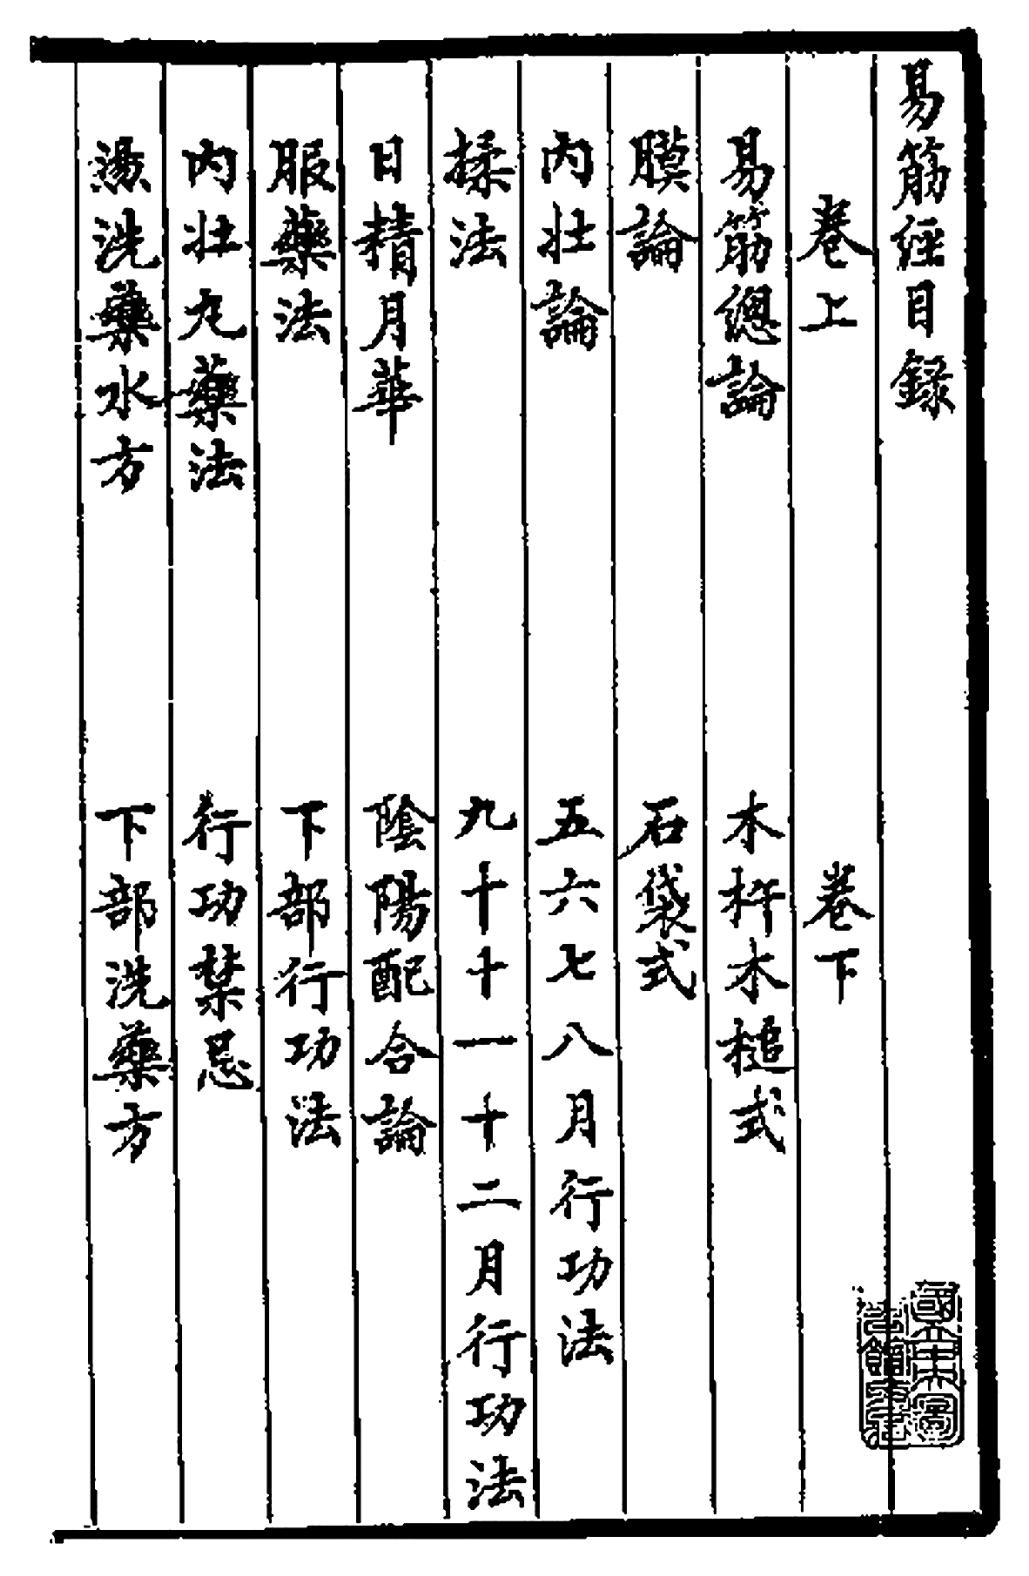 易筋經目録
卷上
易筋總論
膜論
內壯論
揉法
日精月華
服藥法
內壯丸藥法
湯洗藥水方
卷下
木杵木槌式
石袋式
五六七八月行功法
九十十一十二月行功法
陰陽配合論
下部行功法
行功禁忌
下部洗藥方